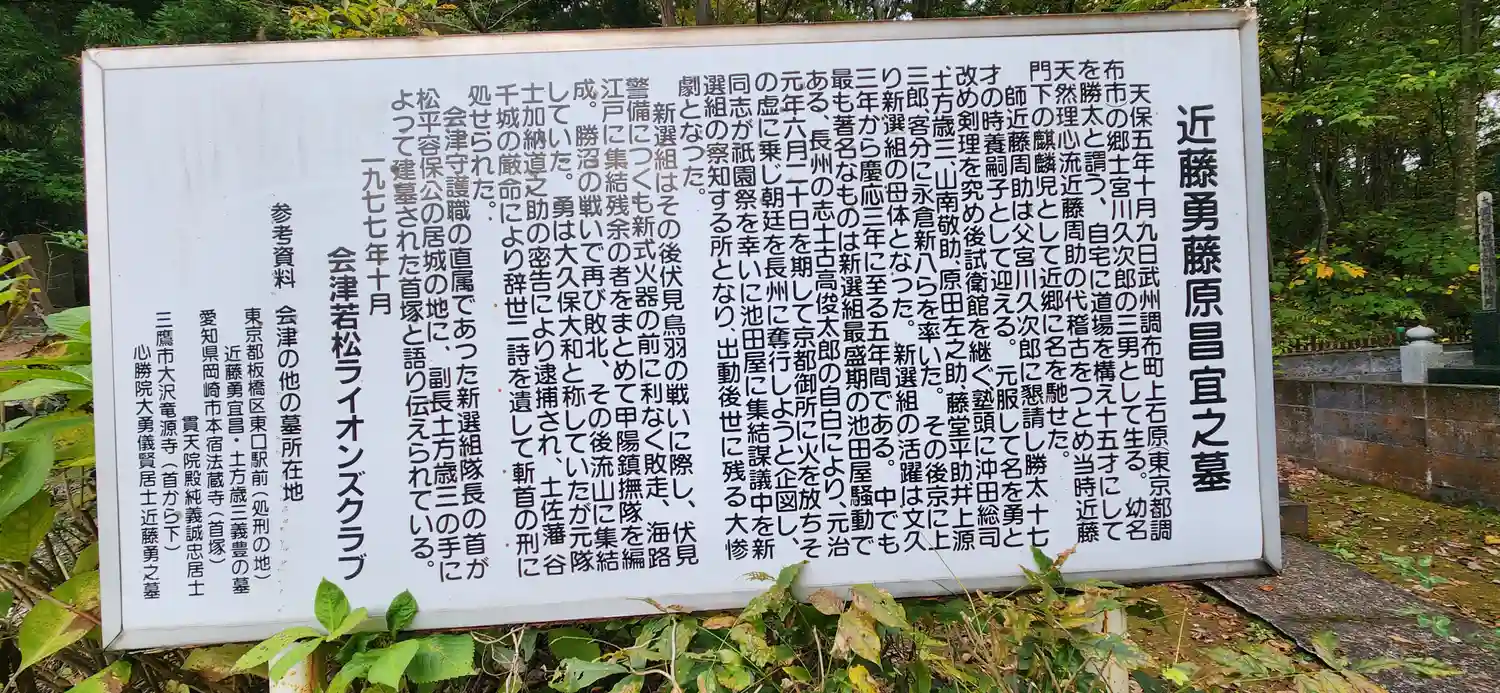 近藤勇藤原昌宜之墓
天保五年十月九日武州調布町上石原東京都調
布市)の郷士宮川久次郎の三男として生る。幼名
を勝太と謂う、自宅に道場を構え十五才にして
天然理心流近藤周助の代稽古をつとめ当時近藤
門下の麒麟児として近郷に名を馳せた。
師近藤周助は父宮川久次郎に懇請し勝太十七
才の時養嗣子として迎える。元服して名を勇と
改め剣理を究め後試衛館を継ぐ塾頭に沖田総司
土方歳三、山南敬助、原田左之助、藤堂平助井上源
三郎客分に永倉新八らを率いた。その後京に上
り新選組の母体となった。新選組の活躍は文久
三年から慶応三年に至る五年間である。中でも
最も著名なものは新選組最盛期の池田屋騒動で
ある、長州の志士古高俊太郎の自白により、元治
元年六月二十日を期して京都御所に火を放ちそ
の虚に乗じ朝廷を長州に奪行しようと企図し、
同志が祇園祭を幸いに池田屋に集結謀議中を新
選組の察知する所となり、出動後世に残る大惨
劇となった。
新選組はその後伏見鳥羽の戦いに際し、伏見
警備につくも新式火器の前に利なく敗走、海路
江戸に集結残余の者をまとめて甲陽鎮撫隊を編
成。勝沼の戦いで再び敗北、その後流山に集結
していた。勇は大久保大和と称していたが元隊
士加納道之助の密告により逮捕され、土佐藩谷
千城の厳命により辞世二詩を遺して斬首の刑に
処せられた。
会津守護職の直属であった新選組隊長の首が
松平容保公の居城の地に、副長土方歳三の手に
よって建墓された首塚と語り伝えられている。
一九七七年十月
会津若松ライオンズクラブ
参考資料 会津の他の墓所在地
東京都板橋区東口駅前(処刑の地)
近藤勇宜昌・土方歳三義豊の墓
愛知県岡崎市本宿法蔵寺(首塚)
貫天院殿純義誠忠居士
三鷹市大沢竜源寺(首から下)
心勝院大勇儀賢居士近藤勇之墓